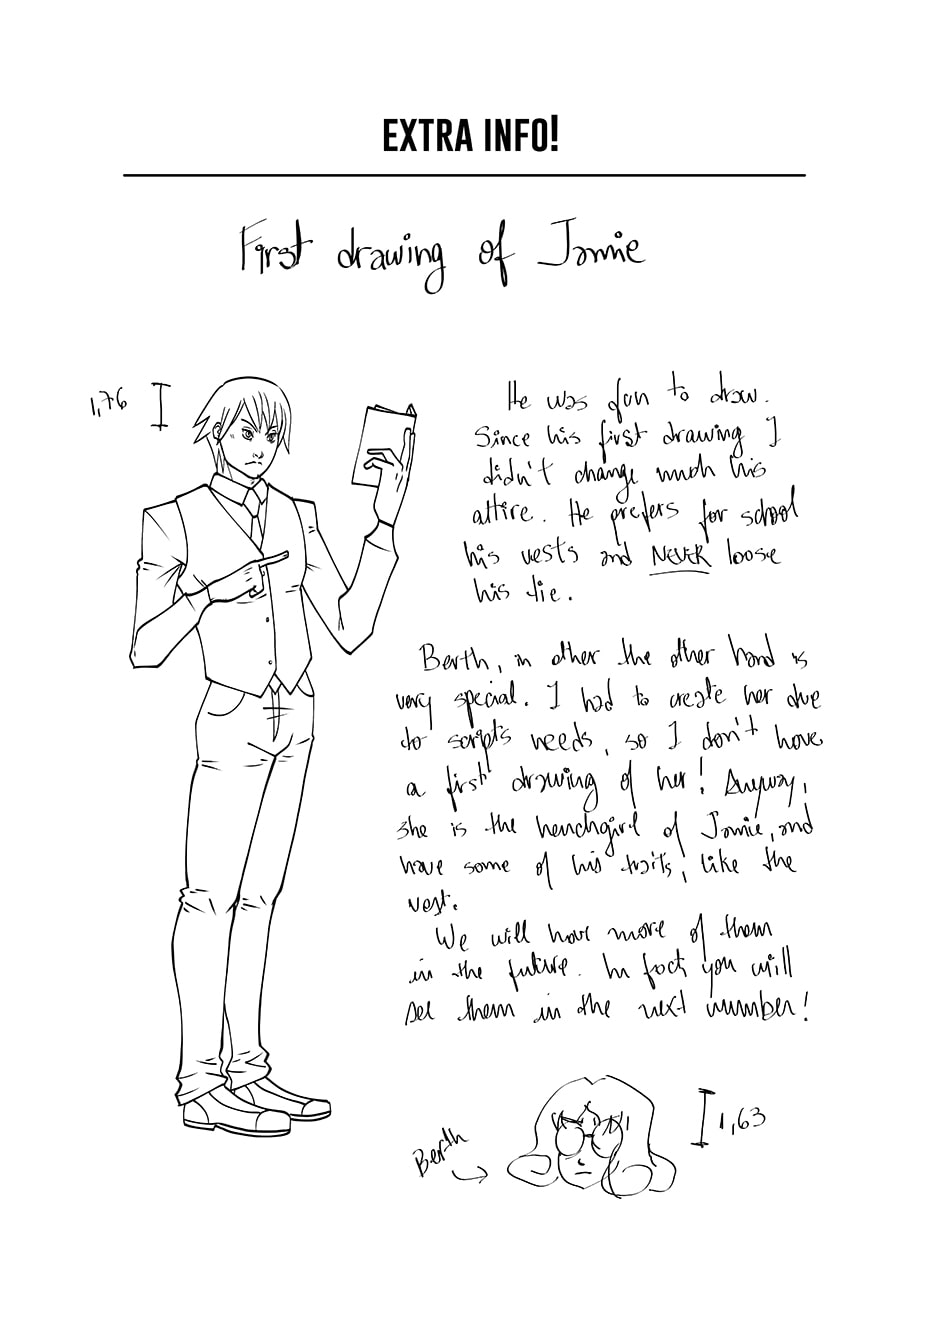 EXTRA INFO!
First drawing of Jamie
1,76
He was fun to draw.
Since his first drawing I
didn't change much his
attire. He prefers for school
his vests and NEVER loose
his tie.
Berth, in other the other hand is
very special. I had to create her due
to scripts needs, so I don't have
a first drawing of her! Anyway,
she is the henchgirl of Jamie, and
have some of his traits, like the
vest.
We will have more of them
in the future. In fact, you will
see them in the next number!
Berth
1,63